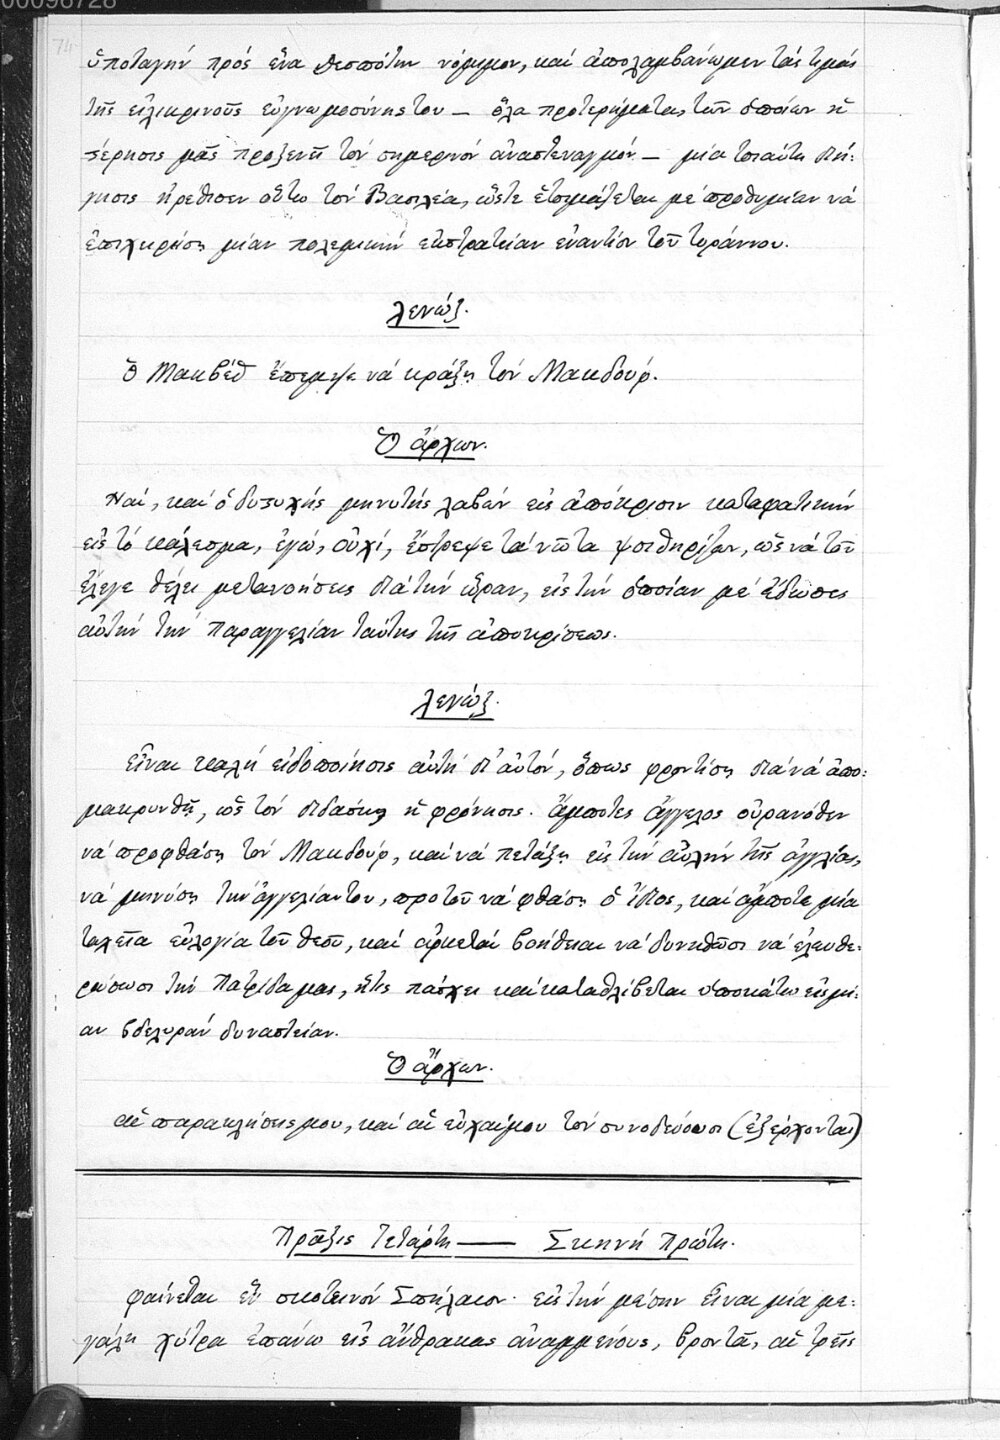 00098728
74
ὑποταγήν πρός ἕνα δεσπότην νόμιμον, καί ἀπολαμβάνωμεν τάς τιμάς
τῆς εἰλικρινοῦς εὐγνωμοσύνης του — ὅλα προτερήματα, τῶν ὁποίων ἡ
στέρησις μᾶς προξενεῖ τόν σημερινόν ἀναστεναγμόν — μία τοιαύτη διή-
γησις ἠρέθισεν οὕτω τόν Βασιλέα, ὥστε ἑτοιμάζεται μέ προθυμίαν νά
ἐπιχειρήσῃ μίαν πολεμικήν ἐκστρατείαν ἐναντίον τοῦ τυράννου.
Λενώξ.
Ὁ Μακβέθ ἔπεμψε νά κράξῃ τόν Μακδούφ.
Ὁ ἄρχων.
Ναί, καί ὁ δυστυχής μηνυτής λαβών εἰς ἀπόκρισιν καταφατικήν
εἰς τό κάλεσμα, ἐγώ, οὐχί, ἔστρεψε τά νῶτα ψιθηρίζων, ὡς νά τοῦ
ἔλεγε θέλει μετανοήσεις διά τήν ὥραν, εἰς τήν ὁποίαν μέ ἔδωσες
αὐτήν τήν παραγγελίαν ταύτης τῆς ἀποκρίσεως.
Λενώξ.
Εἶναι καλή εἰδοποίησις αὐτή δι' αὐτόν, ὅπως φροντίσῃ διά νά ἀπο-
μακρυνθῇ, ὡς τόν διδάσκει ἡ φρόνησις. ἄμποτες ἄγγελος οὐρανόθεν
νά προφθάσῃ τόν Μακδούφ, καί νά πετάξῃ εἰς τήν αὐλήν τῆς ἀγγλίας,
νά μηνύσῃ τήν ἀγγελίαν του, προτοῦ νά φθάσῃ ὁ ἴδιος, καί ἄμποτε μία
ταχεῖα εὐλογία τοῦ θεοῦ, καί ἀρκεταί βοήθειαι νά δυνηθῶσι νά ἐλευθε-
ρώσωσι τήν Πατρίδα μας, ἥτις πάσχει καί καταθλίβεται ὑποκάτω εἰς μί-
αν βδελυράν δυναστείαν.
Ὁ ἄρχων.
αἱ παρακλήσεις μου, καί αἱ εὐχαί μου τόν συνοδεύουσι (ἐξέρχονται)
Πρᾶξις Τετάρτη — Σκηνή Πρώτη.
φαίνεται ἕν σκοτεινόν Σπήλαιον. εἰς τήν μέσην εἶναι μία με-
γάλη χύτρα ἐπάνω εἰς ἄνθρακας ἀναμμένους, βροντᾷ, αἱ τρεῖς